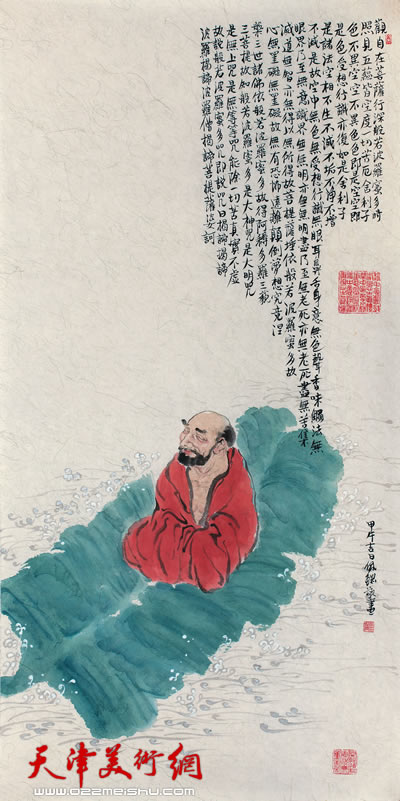 觀自在菩薩行深般若波羅蜜多時
照見五蘊皆空度一切苦厄舍利子
色不異空空不異色色即是空空即
是色受想行識亦復如是舍利子
是諸法空相不生不滅不垢不淨不增
不減是故空中無色無受想行識無眼耳鼻舌身意無色聲香味觸法無
眼界乃至無意識界無無明亦無無明盡乃至無老死亦無老死盡無苦集
滅道無智亦無得以無所得故菩提薩埵依般若波羅蜜多故
心無罣礙無罣礙故無有恐怖遠離顛倒夢想究竟涅
槃三世諸佛依般若波羅蜜多故得阿耨多羅三藐
三菩提故知般若波羅蜜多是大神咒是大明咒
是無上咒是無等等咒能除一切苦真實不虛
故說般若波羅蜜多咒即說咒曰揭諦揭諦
波羅揭諦波羅僧揭諦菩提薩婆訶
甲午吉日
天津美術網
www.022meishu.com